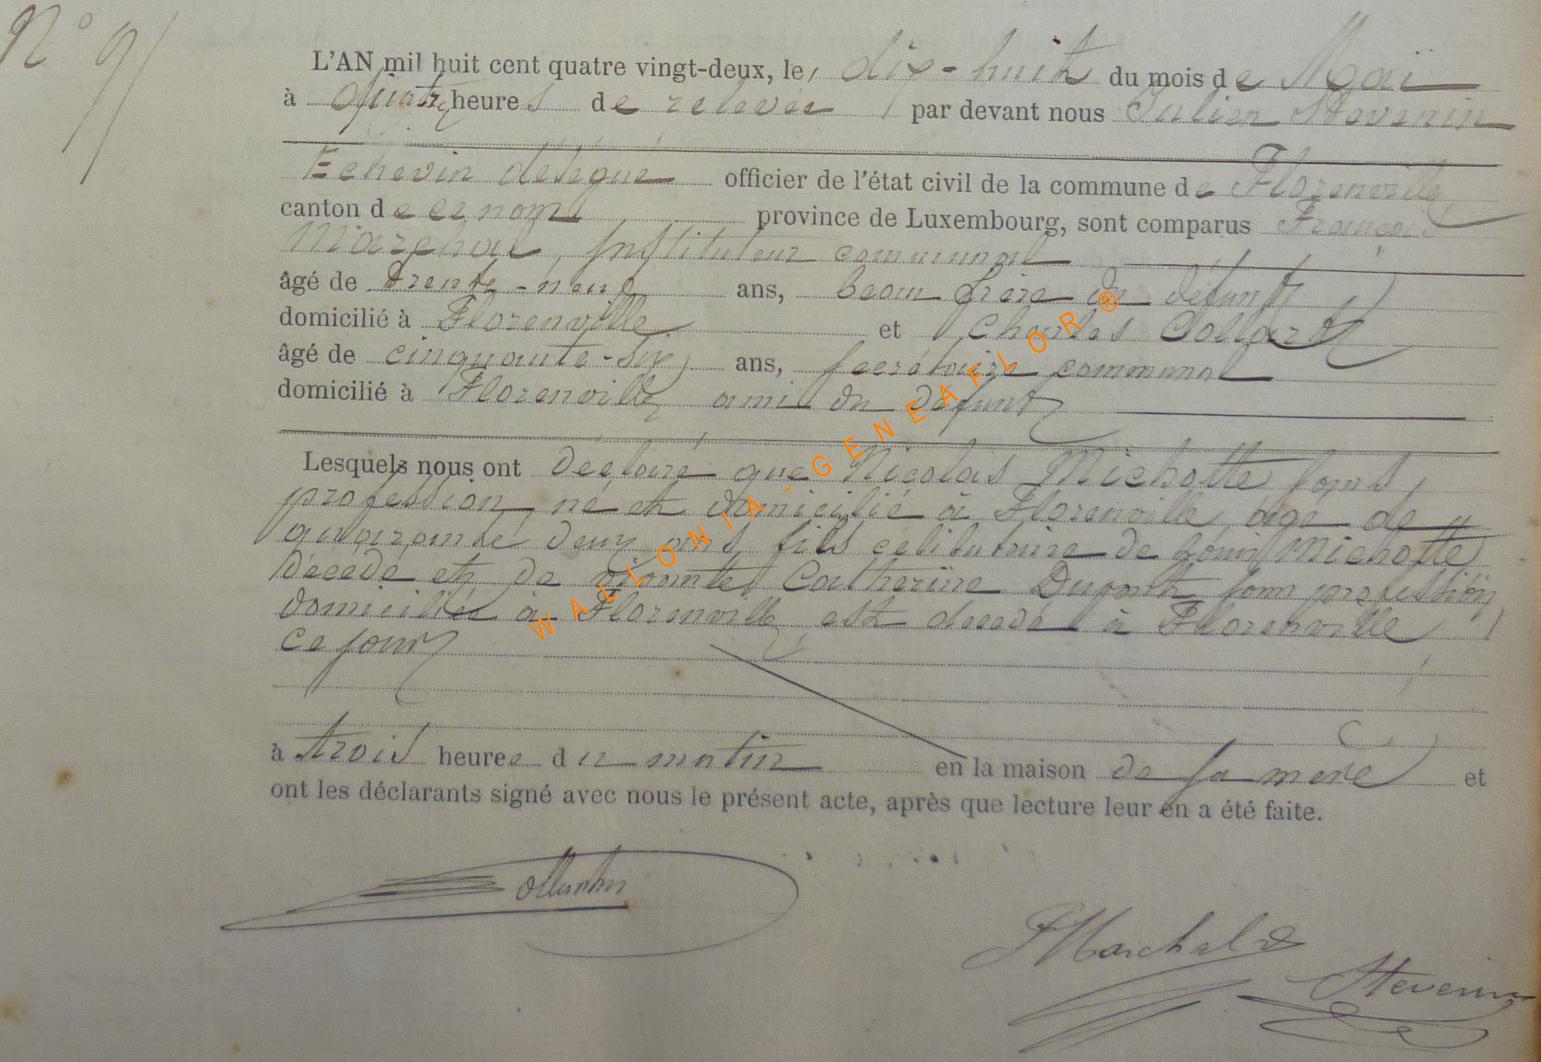 N° 9
L'AN mil huit cent quatre vingt-deux, le dix-huit du mois de Mai
à quatre heures de relevée par devant nous Julien Stevenin
Echevin délégué officier de l'état civil de la commune de Florenville
canton de ce nom province de Luxembourg, sont comparus François
Marchal, Instituteur communal
âgé de trente-neuf ans, beau frère du défunt
domicilié à Florenville et Charles Collard
âgé de cinquante-six ans, secrétaire communal
domicilié à Florenville ami du défunt
Lesquels nous ont déclaré que Nicolas Michotte sans
profession, né et domicilié à Florenville, âgé de
quarante deux ans, fils célibataire de Michotte
décédé et de vivante Catherine Dupont sans profession
domiciliée à Florenville, est décédé à Florenville
ce jour
à trois heures du matin en la maison de sa mère et
ont les déclarants signé avec nous le présent acte, après que lecture leur en a été faite.
FMarchal
Stevenin
WALLONIA-GENEAFLOR®